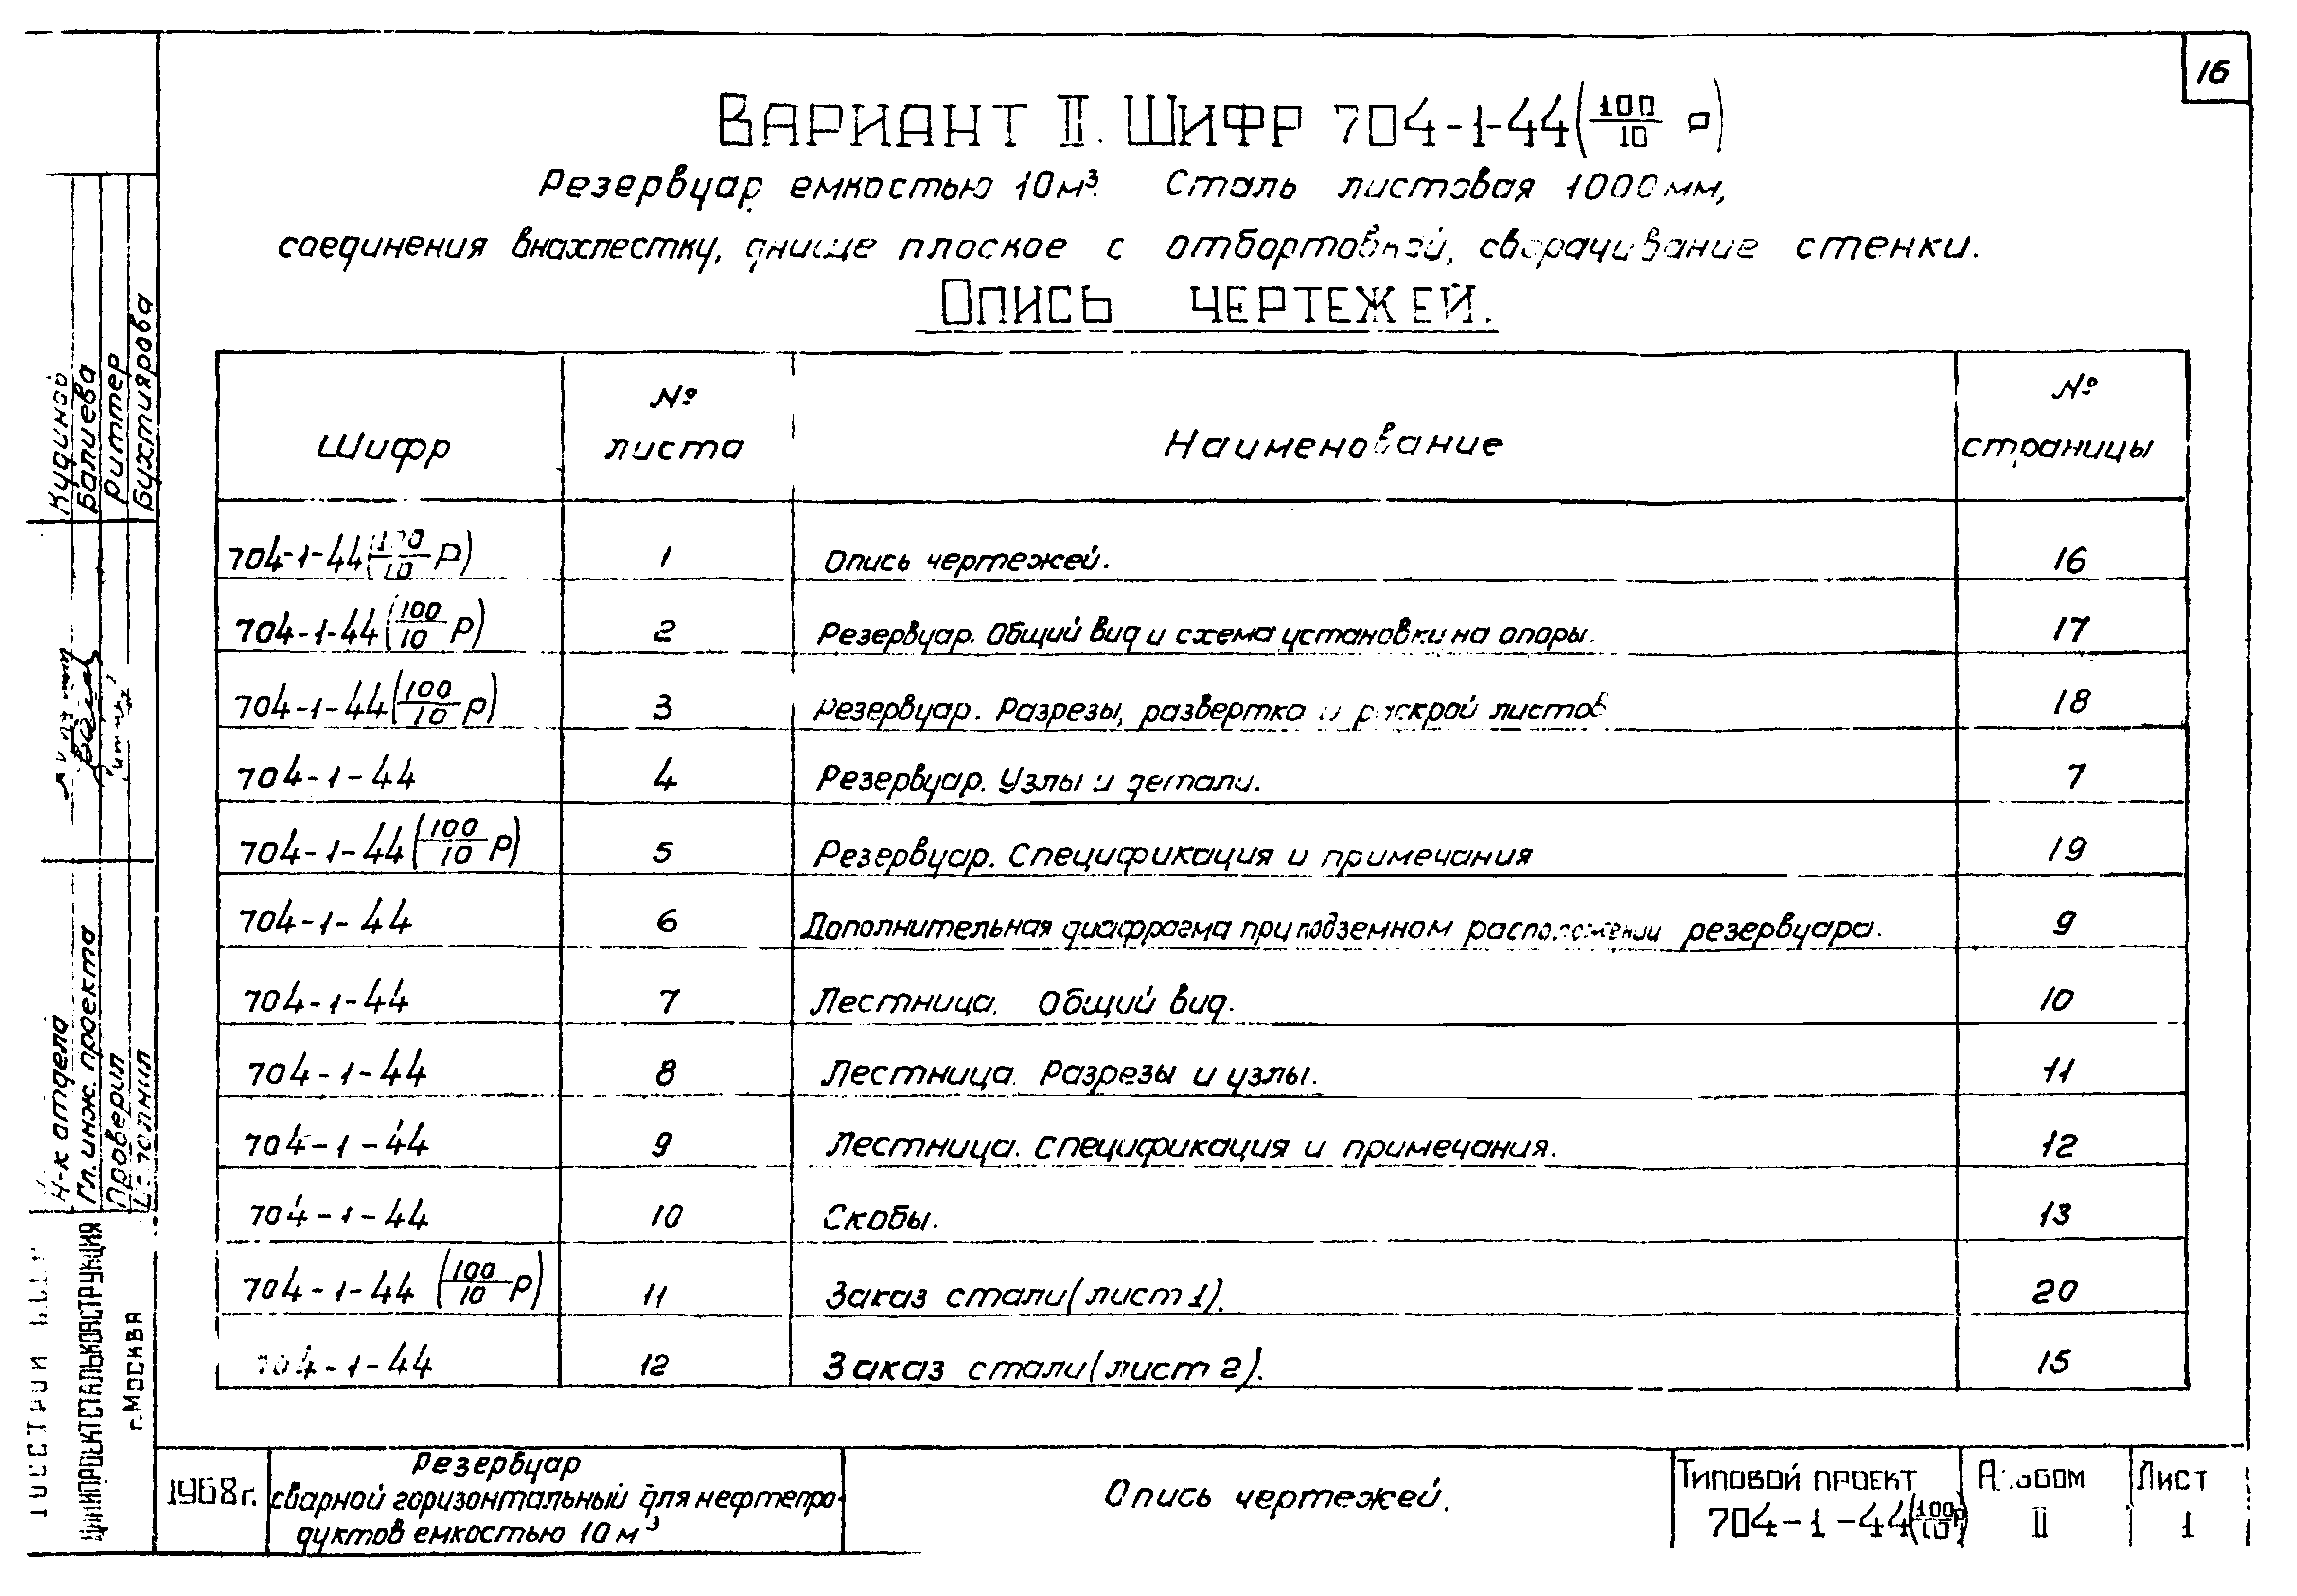 16
ВАРИАНТ II. ШИФР 704-1-44(100/10 р)
Резервуар емкостью 10м³. Сталь листовая 1000мм,
соединения внахлестку, днище плоское с отбортовкой, сворачивание стенки.
ОПИСЬ ЧЕРТЕЖЕЙ.
Шифр | № листа | Наименование | № страницы
704-1-44(100/10 р) | 1 | Опись чертежей. | 16
704-1-44(100/10 р) | 2 | Резервуар. Общий вид и схема установки на опоры. | 17
704-1-44(100/10 р) | 3 | Резервуар. Разрезы, развертка и раскрой листов | 18
704-1-44 | 4 | Резервуар. Узлы и детали. | 7
704-1-44(100/10 р) | 5 | Резервуар. Спецификация и примечания | 19
704-1-44 | 6 | Дополнительная диафрагма при подземном расположении резервуара. | 9
704-1-44 | 7 | Лестница. Общий вид. | 10
704-1-44 | 8 | Лестница. Разрезы и узлы. | 11
704-1-44 | 9 | Лестница. Спецификация и примечания. | 12
704-1-44 | 10 | Скобы. | 13
704-1-44 (100/10 р) | 11 | Заказ стали (лист 1). | 20
704-1-44 | 12 | Заказ стали (лист 2). | 15
1968г.
Резервуар
сварной горизонтальный для нефтепро-
дуктов емкостью 10м³
Опись чертежей.
ТИПОВОЙ ПРОЕКТ
704-1-44(100/10 р)
Альбом
II
Лист
1
Н-к отдела Кудинов
Гл. инж. проекта Валиева
Проверил Риттер
Исполнил Бухтиярова
ГОССТРОЙ СССР
ЦНИИПРОЕКТСТАЛЬКОНСТРУКЦИЯ
г. Москва